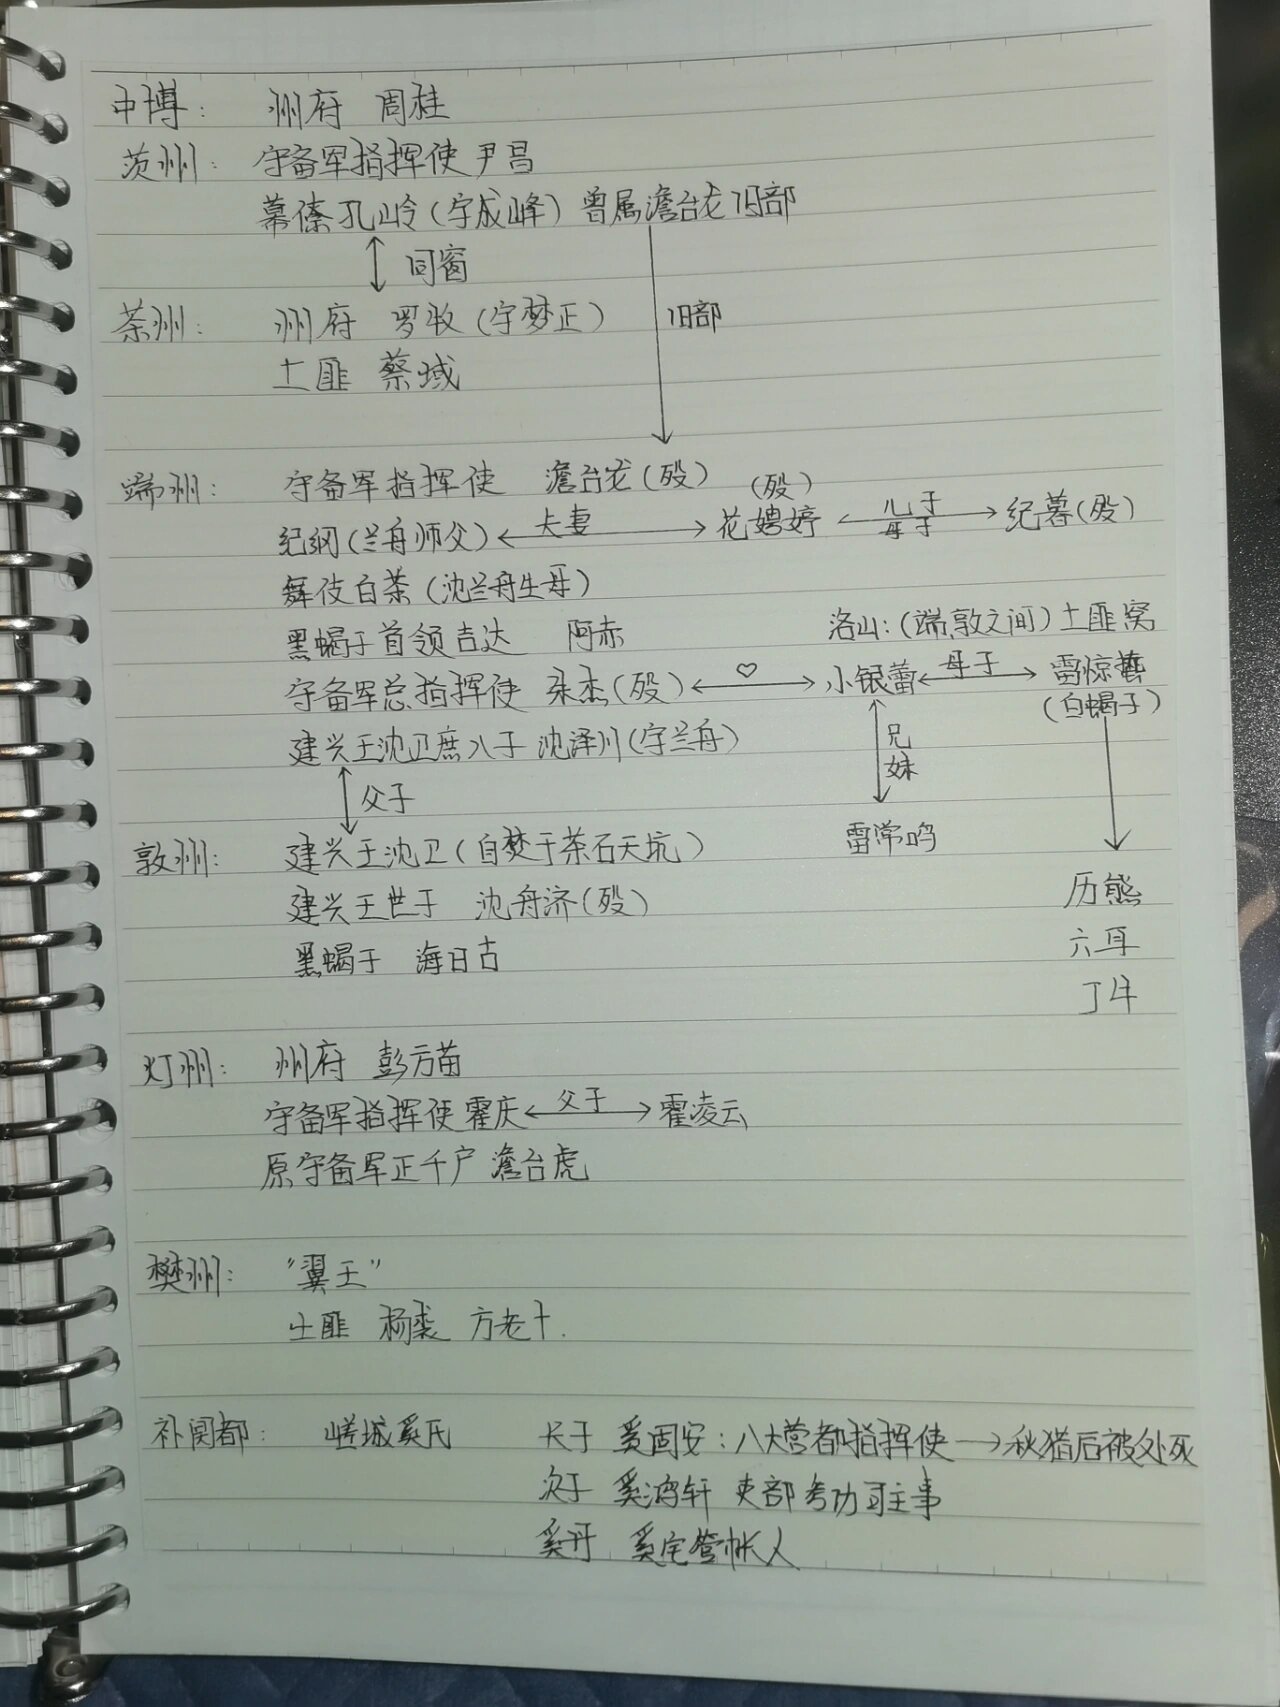 中博： 州府 周桂
茨州： 守备军指挥使 尹昌
幕僚 孔岭（字成峰）曾属澹台龙旧部
同窗
茶州： 州府 罗牧（字梦正） 旧部
土匪 蔡域
端州： 守备军指挥使 澹台龙（殁）（殁）
纪纲（兰舟师父） 夫妻 花娉婷 儿子 母子 纪暮（殁）
舞伎白茶（沈兰舟生母）
黑蝎子首领吉达 阿赤 洛山：（端，敦之间）土匪窝
守备军总指挥使 朵杰（殁） ♡ 小银蕾 母子 雷惊蛰
（白蝎子）
建兴王沈卫庶八子 沈泽川（字兰舟） 兄妹
父子
敦州： 建兴王沈卫（自焚于茶石天坑） 雷常鸣
建兴王世子 沈舟济（殁） 历熊
黑蝎子 海日古 六耳
丁牛
灯州： 州府 彭方苗
守备军指挥使 霍庆 父子 霍凌云
原守备军正千户 澹台虎
樊州： “翼王”
土匪 杨裘 方老十.
补阒都： 嵯城奚氏 长子 奚固安：八大营都指挥使→秋猎后被处死
次子 奚鸿轩 吏部考功司主事
奚丹 奚宅管帐人